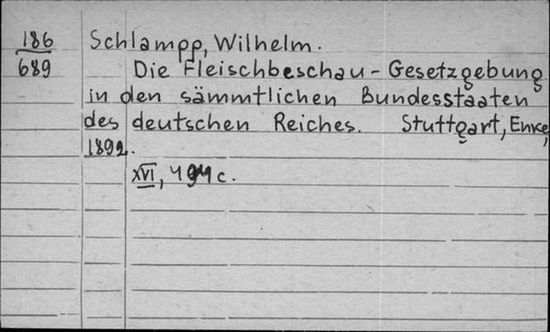 186
689
Schlampp, Wilhelm.
Die Fleischbeschau-Gesetzgebung
in den sämmtlichen Bundesstaaten
des deutschen Reiches. Stuttgart, Enke,
1892.
XVI, c.